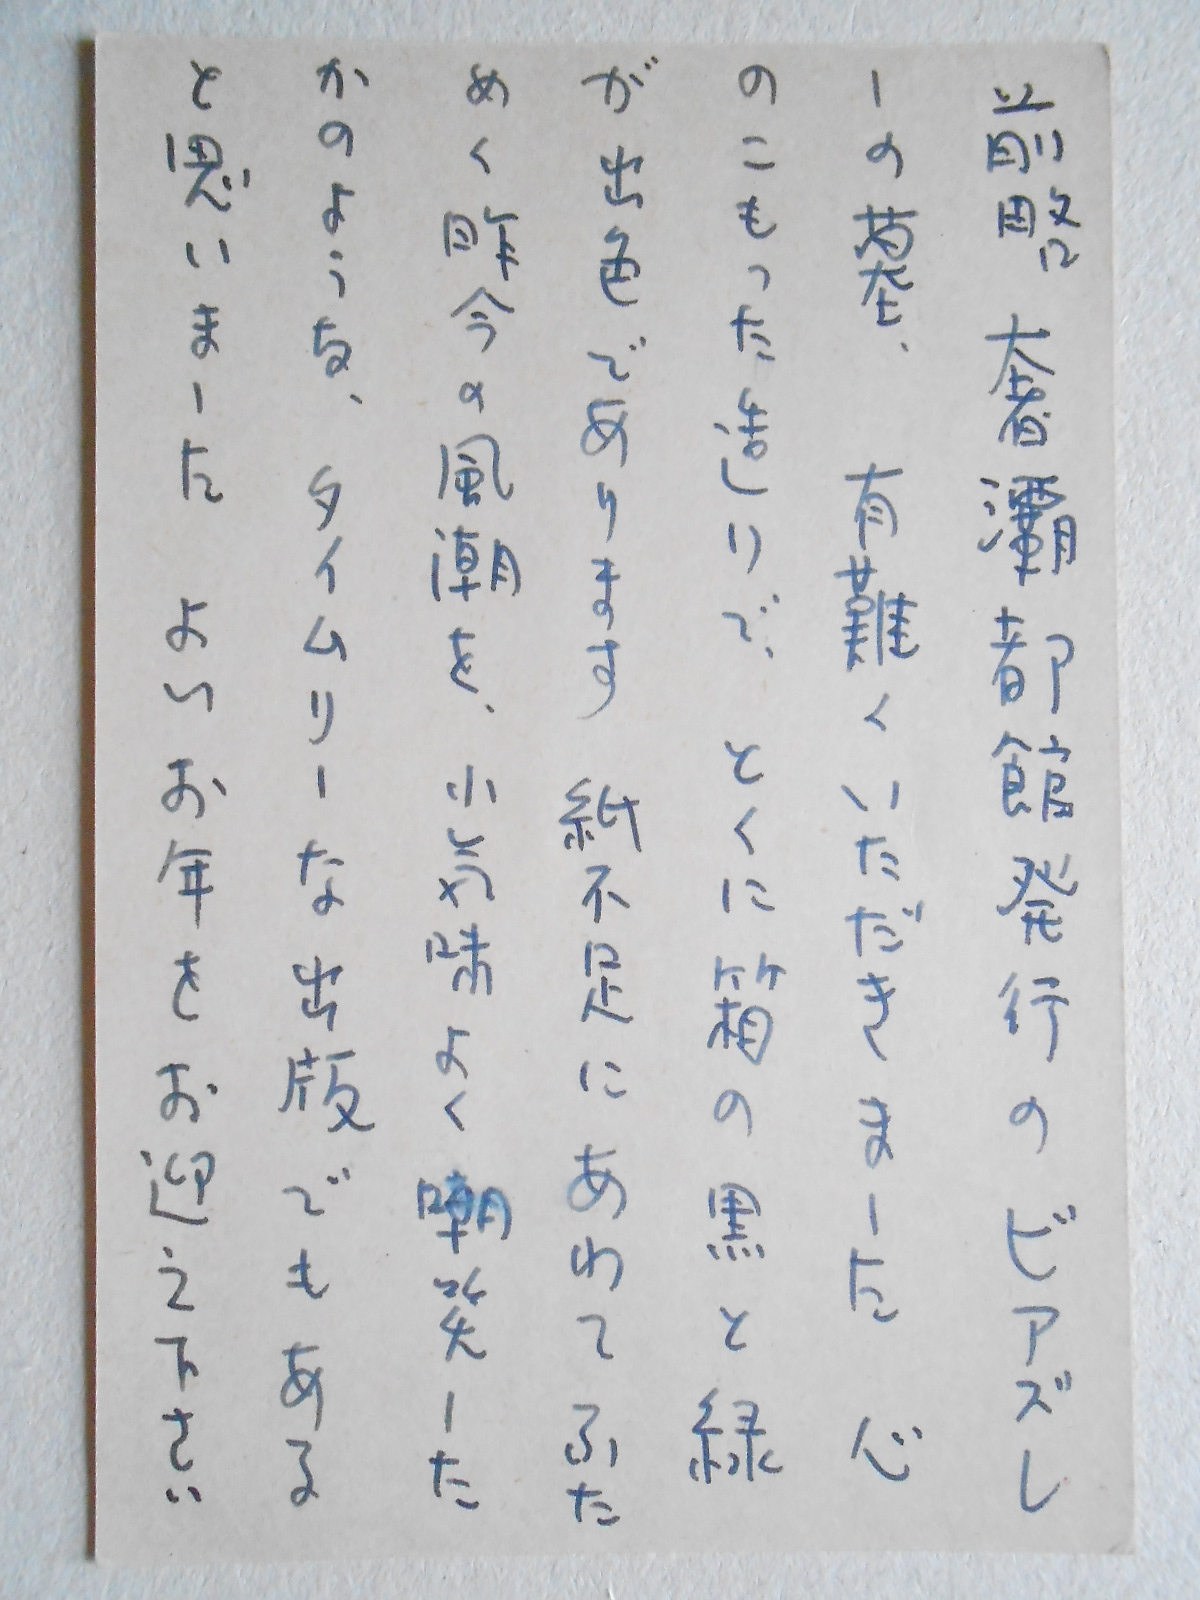 前略 奢灞都館発行のビアズレ
ーの墓、 有難くいただきました 心
のこもった造りで、とくに箱の黒と緑
が出色であります 紙不足にあわてふた
めく昨今の風潮を、小気味よく嘲笑した
かのような、タイムリーな出版でもある
と思いました よいお年をお迎え下さい